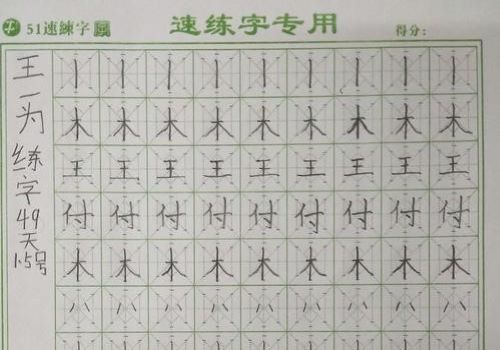 51速練字
速练字专用
得分：
王一为练字49天1.5号
丨丨丨丨丨丨丨丨丨
木木木木木木木木木
王王王王王王王王王
付付付付付付付付付
木木木木木木木木木
八八八八八八八八八